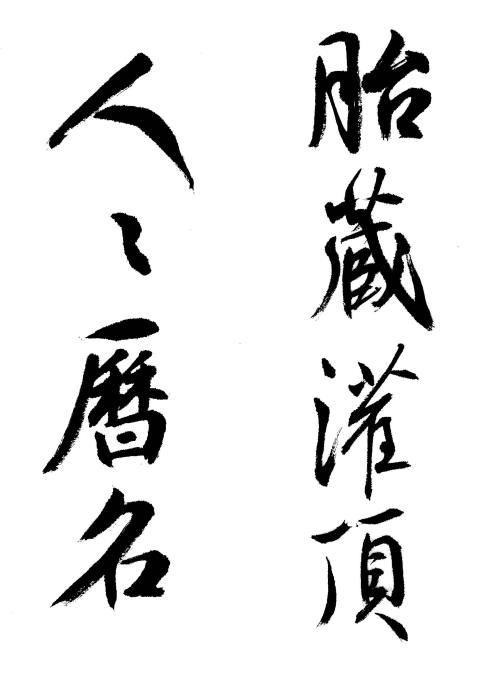 胎蔵灌頂
人々暦名